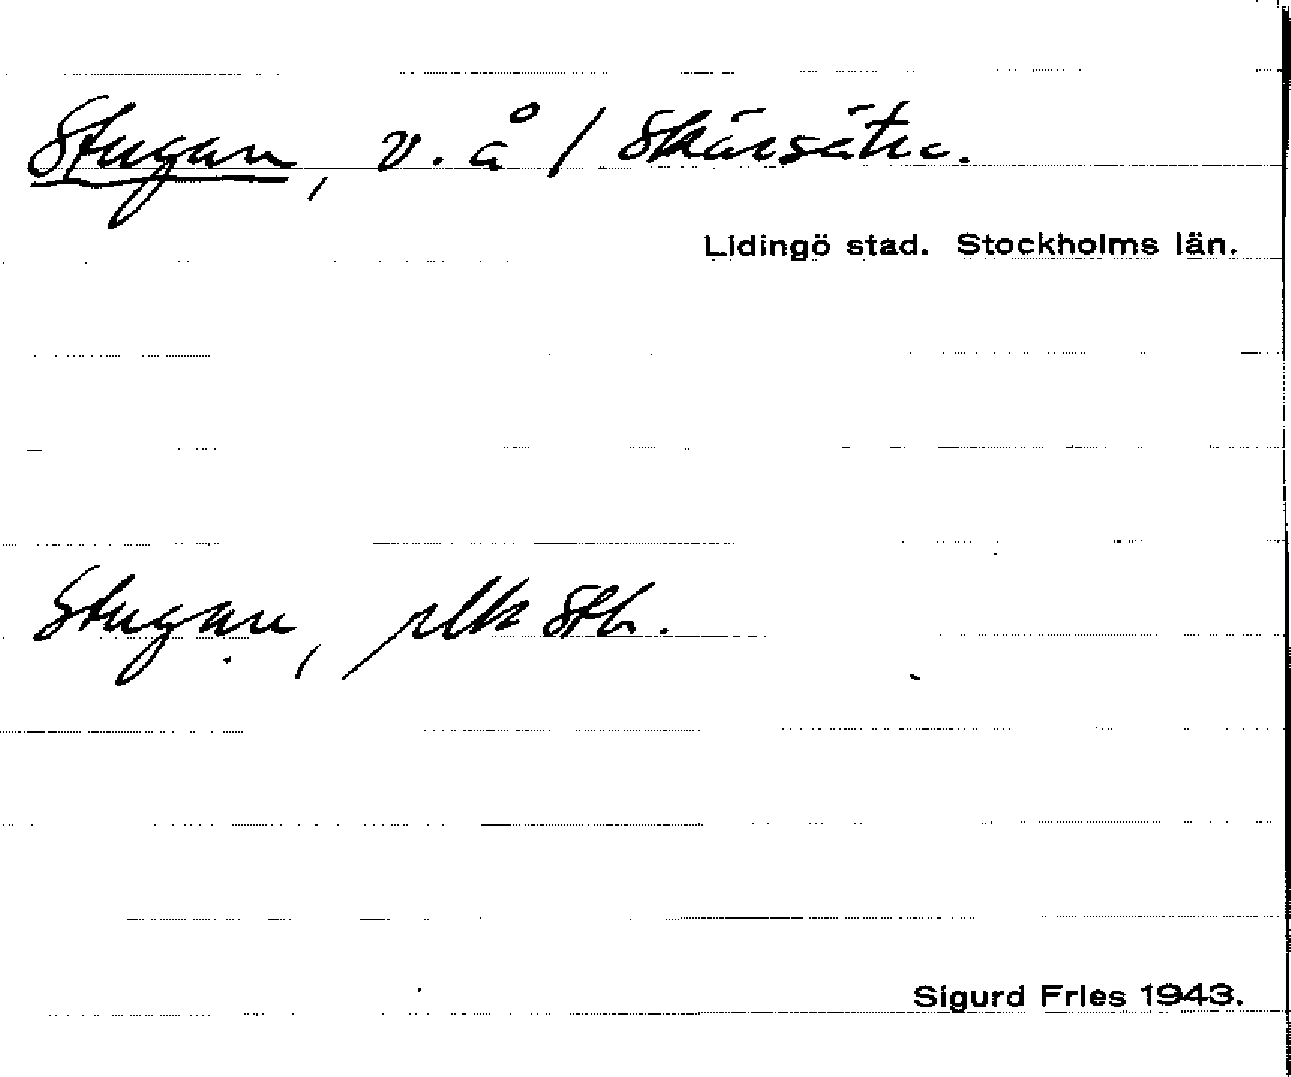 Stugan, v. å / Skärsätra.
Lidingö stad. Stockholms län.
Stugan, plk Stb.
Sigurd Fries 1943.